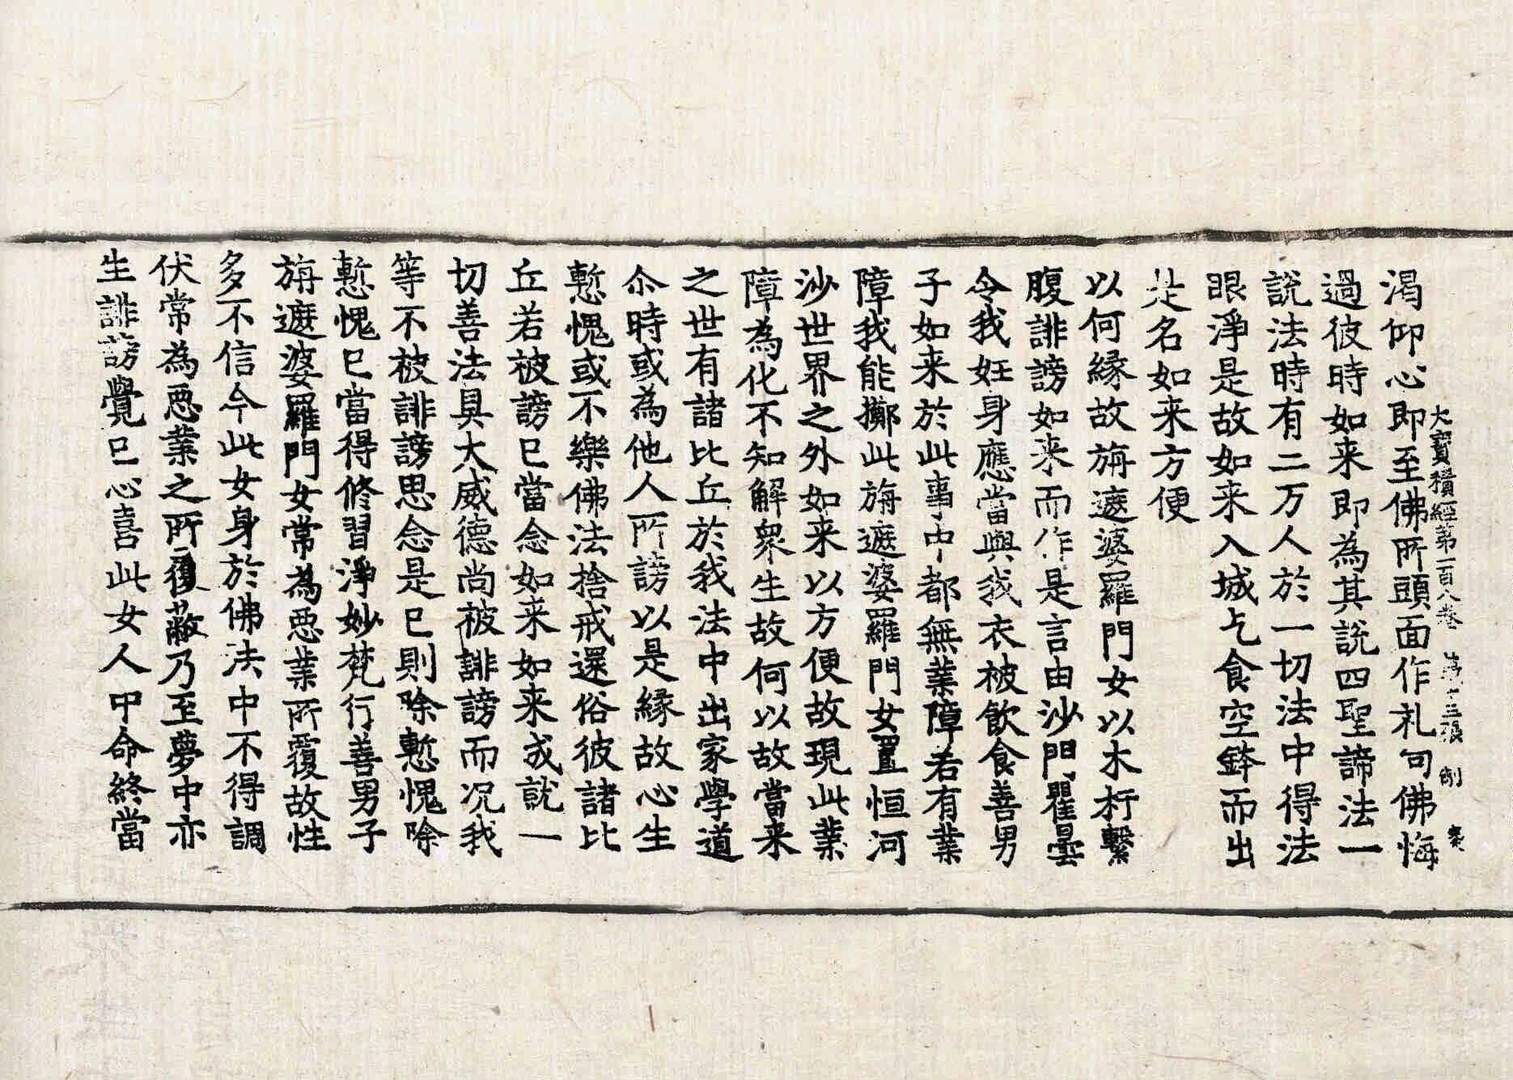 大寶積經第一百八卷 第十三張 剆
渇仰心即至佛所頭面作礼句佛悔
過彼時如来即為其說四聖諦法一
說法時有二万人於一切法中得法
眼淨是故如来入城乞食空鉢而出
是名如来方便
以何縁故旃遮婆羅門女以木杅繫
腹誹謗如来而作是言由沙門瞿曇
令我妊身應當與我衣被飲食善男
子如来於此事中都無業障若有業
障我能擲此旃遮婆羅門女置恒河
沙世界之外如来以方便故現此業
障為化不知解衆生故何以故當来
之世有諸比丘於我法中出家學道
尒時或為他人所謗以是縁故心生
慙愧或不樂佛法捨戒還俗彼諸比
丘若被謗已當念如来如来成就一
切善法具大威德尚被誹謗而况我
等不被誹謗思念是已則除慙愧除
慙愧已當得修習淨妙梵行善男子
旃遮婆羅門女常為惡業所覆故性
多不信今此女身於佛法中不得調
伏常為惡業之所覆蔽乃至夢中亦
生誹謗覺已心喜此女人中命終當